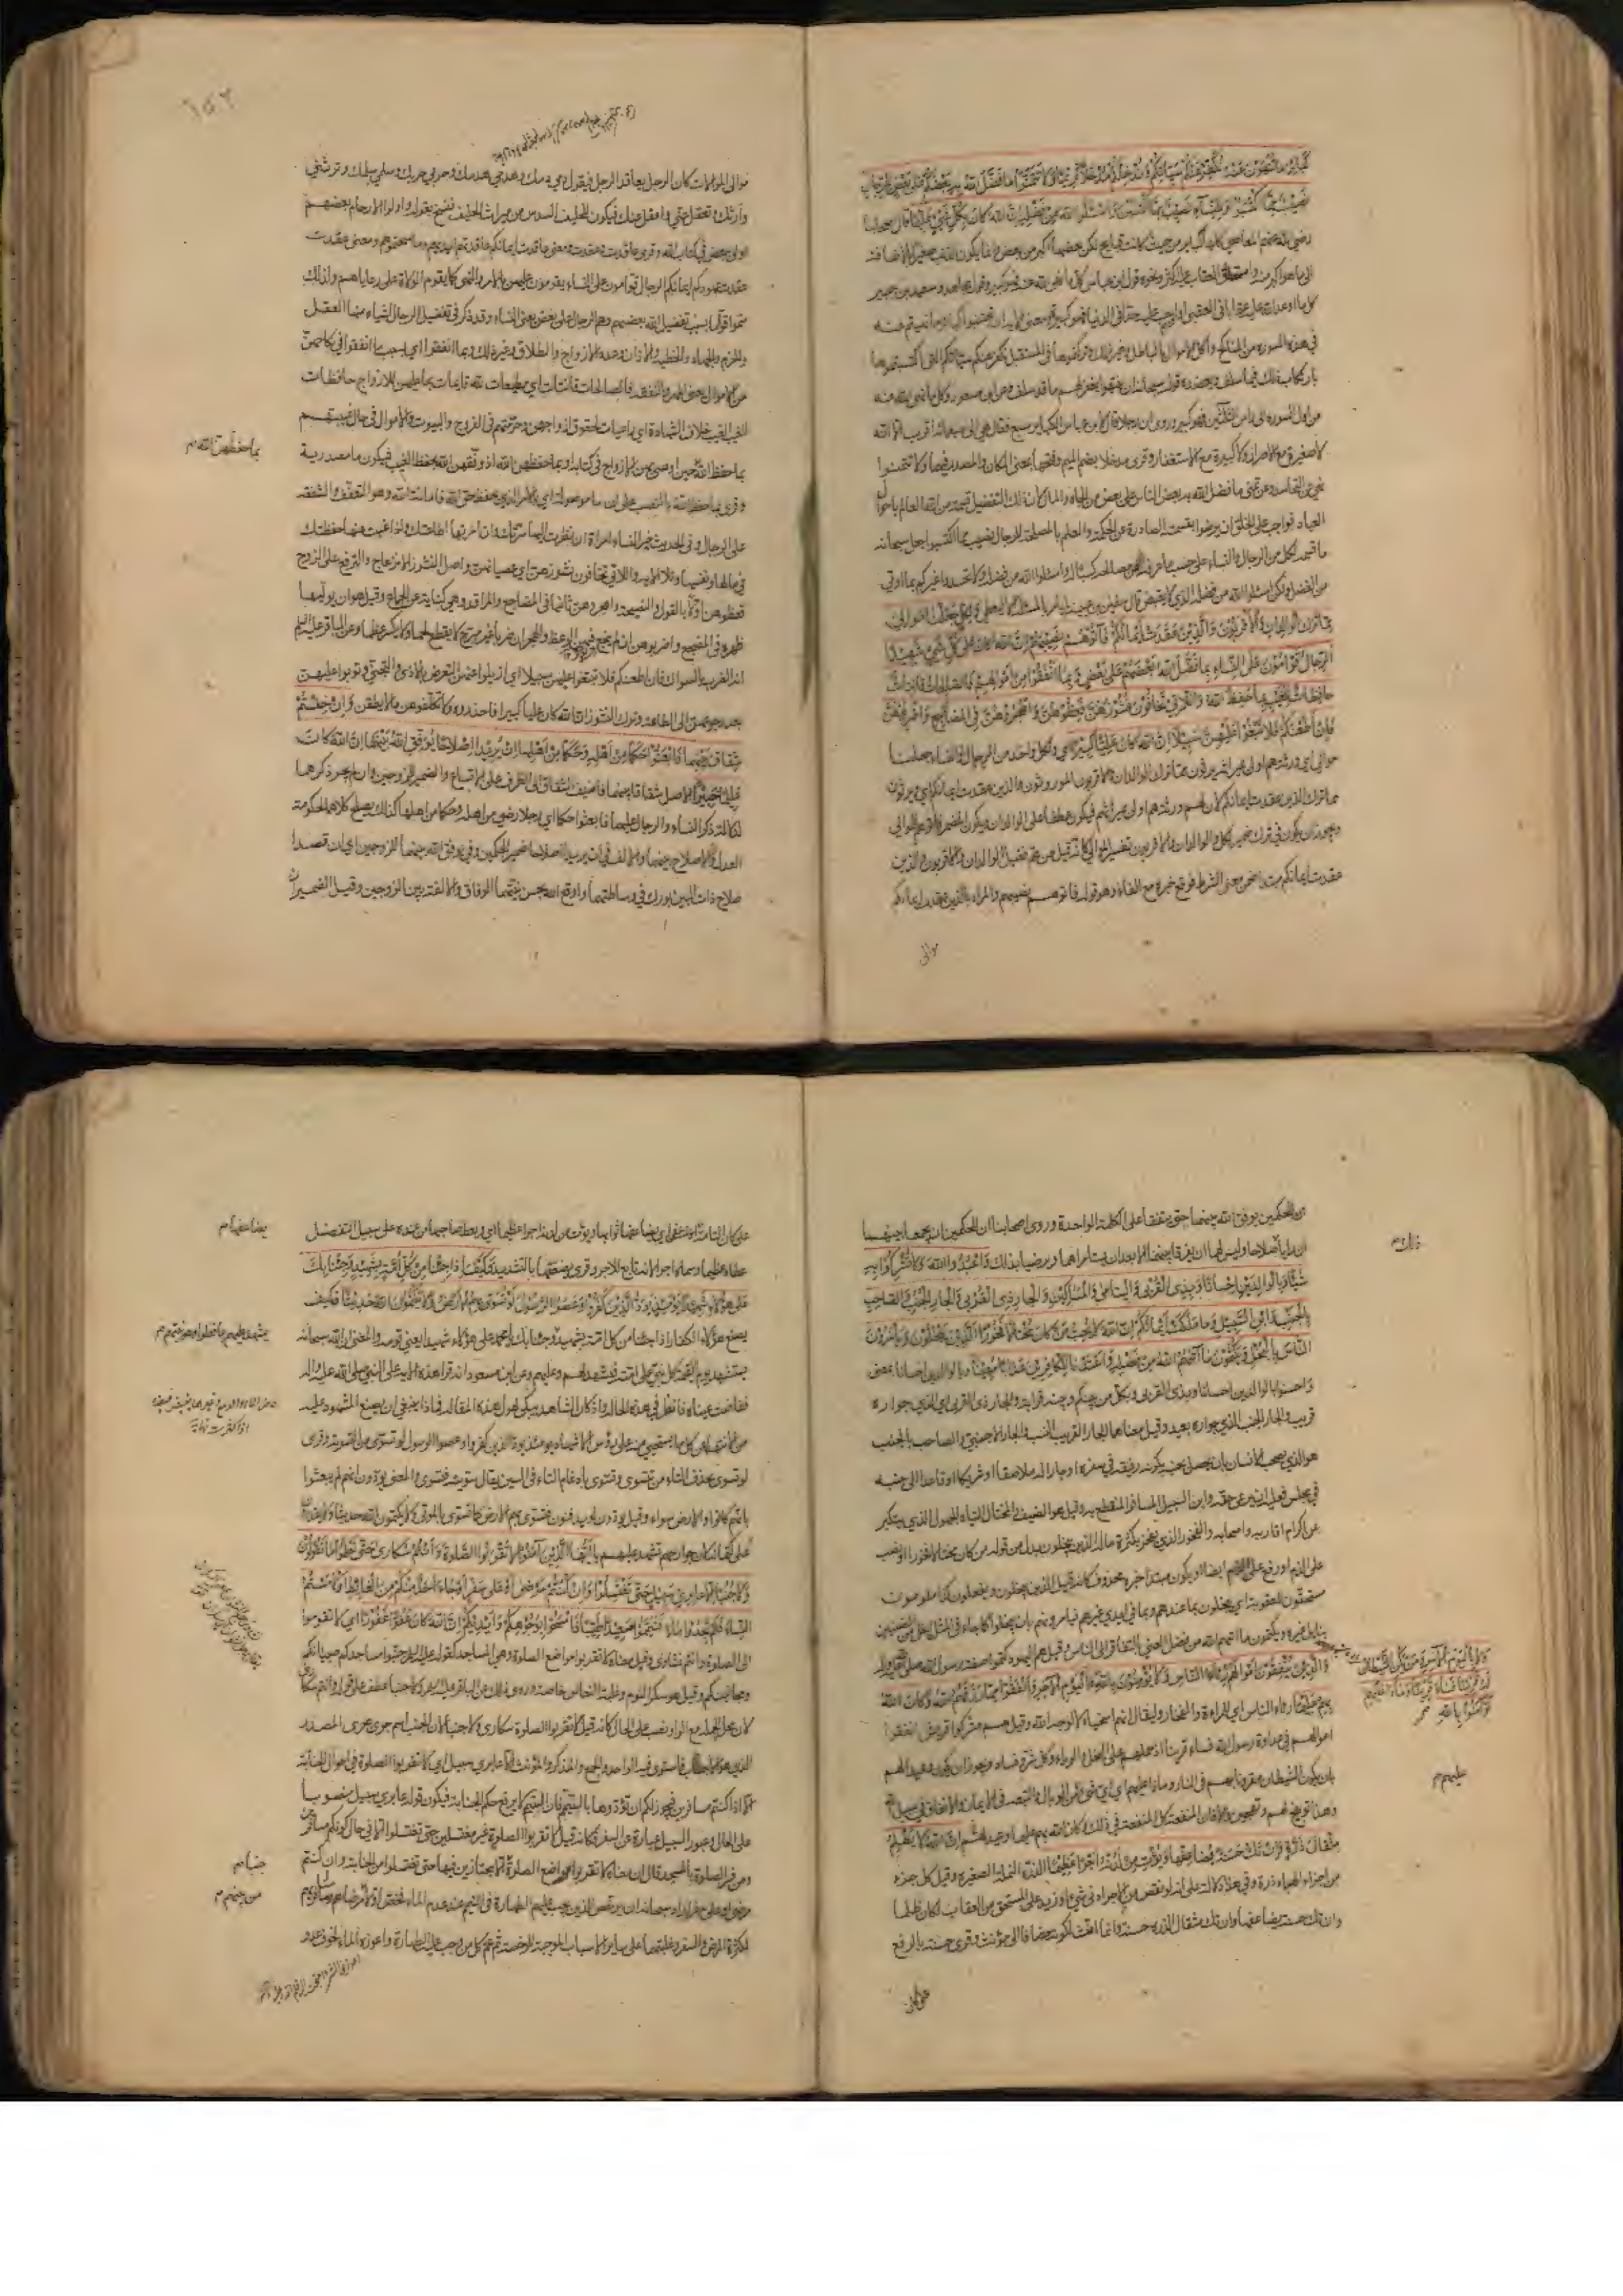 كبائر ما تنهون عنه نكفر عنكم سيئاتكم وندخلكم مدخلا كريما ولا تتمنوا ما فضل الله به بعضكم على بعض للرجال
نصيب مما اكتسبوا وللنساء نصيب مما اكتسبن واسئلوا الله من فضله ان الله كان بكل شيء عليما قال اصحابنا
رضي الله عنهم المعاصي كلها كباير من حيث كانت قبايح لكن بعضها اكبر من بعض وانما يكون الذنب صغيرا بالاضافة
الى ما هو اكبر منه واستحقاق العقاب عليه اكثر ونحوه قول ابن عباس كل ما نهى الله عنه فهو كبير وقول مجاهد وسعيد بن جبير
كل ما اوعد الله عليه عقابا في العقبى او اوجب عليه حدا في الدنيا فهو كبيرة ومعنى الاية ان تجتنبوا كباير ما نهيتم عنه
في هذه السورة من المناكح واكل الاموال بالباطل وغير ذلك وتركتموها في المستقبل نكفر عنكم سيئاتكم التي اكتسبتموها
بارتكاب ذلك فيما سلف ويعضده قوله سبحانه ان ينتهوا يغفر لهم ما قد سلف وعن ابن مسعود كل ما نهى الله عنه
من اول السورة الى راس الثلثين فهو كبيرة وروي ان رجلا قال لابن عباس الكباير سبع فقال هي الى سبعمائة اقرب الا انه
لا صغيرة مع الاصرار ولا كبيرة مع الاستغفار وقرئ مدخلا بضم الميم وفتحها بمعنى المكان والمصدر فيهما ولا تتمنوا
نهي عن التحاسد وعن تمني ما فضل الله به بعض الناس على بعض من الجاه والمال لان ذلك التفضيل قسمة من الله العالم باحوال
العباد فواجب على الخلق ان يرضوا بقسمته الصادرة عن الحكمة والعلم بالمصلحة للرجال نصيب مما اكتسبوا جعل سبحانه
ما قسم لكل من الرجال والنساء على حسب ما عرف من حاله كسبا له واسئلوا الله من فضله ولا تحسدوا غيركم بما اوتي
من الفضل ولكن اسئلوا الله من فضله الذي لا يغيض قال سفين بن عيينه لم يامر بالمسئلة الا ليعطي ولكل جعلنا موالي
مما ترك الوالدان والاقربون والذين عقدت ايمانكم فآتوهم نصيبهم ان الله كان على كل شيء شهيدا
الرجال قوامون على النساء بما فضل الله بعضهم على بعض وبما انفقوا من اموالهم فالصالحات قانتات
حافظات للغيب بما حفظ الله واللاتي تخافون نشوزهن فعظوهن واهجروهن في المضاجع واضربوهن
فان اطعنكم فلا تبغوا عليهن سبيلا ان الله كان عليا كبيرا اي ولكل واحد من الرجال والنساء جعلنا
موالي اي ورثة هم اولى بميراثه يرثون مما ترك الوالدان والاقربون الموروثون والذين عقدت ايمانكم اي ويرثون
مما ترك الذين عقدت ايمانكم لان لهم ورثة هم اولى بميراثهم فيكون عطفا على الوالدان ويكون المضمر في فاتوهم للموالي
ويجوز ان يكون في ترك ضمير كل والوالدان والاقربون تفسير الموالي كانه قيل من هم فقيل الوالدان والاقربون والذين
عقدت ايمانكم مبتدا ضمن معنى الشرط فوقع خبره مع الفاء وهو قوله فاتوهم نصيبهم والمراد بالذين عقدت ايمانكم
موالي
موالي الموالات كان الرجل يعاقد الرجل فيقول دمي دمك وهدمي هدمك وحربي حربك وسلمي سلمك وترثني
وارثك وتعقل عني واعقل عنك فيكون للحليف السدس من ميراث الحليف فنسخ بقوله واولوا الارحام بعضهم
اولى ببعض في كتاب الله وقرئ عاقدت وعقدت ومعنى عاقدت ايمانكم عاقدتهم ايديهم وماسحتموهم ومعنى عقدت
عقدت عهودكم ايمانكم الرجال قوامون على النساء يقومون عليهن بالامر والنهي كما يقوم الولاة على رعاياهم ولذلك
سموا قواما بسبب تفضيل الله بعضهم وهم الرجال على بعض يعني النساء وقد ذكر في تفضيل الرجال اشياء منها العقل
والحزم والجهاد والخطبة والاذان وعدد الازواج والطلاق وغير ذلك وبما انفقوا اي بسبب ما انفقوا في نكاحهن
من الاموال يعني المهر والنفقة فالصالحات قانتات اي مطيعات لله قايمات بما عليهن للازواج حافظات
للغيب الغيب خلاف الشهادة اي راعيات لحقوق ازواجهن وحرمتهم في الفروج والبيوت والاموال في حال غيبتهم
بما حفظهن الله م
بما حفظ الله حين اوصى بهن الازواج في كتابه او بما حفظهن الله اذ وفقهن الله لحفظ الغيب فيكون ما مصدرية
وقرئ بما حفظ الله بالنصب على ان ما موصولة اي بالامر الذي يحفظ حق الله وامانة الله وهو التعفف والشفقة
على الرجال وفي الحديث خير النساء امراة ان نظرت اليها سرتك وان امرتها اطاعتك واذا غبت عنها حفظتك
في مالها ونفسها وتلا الاية واللاتي تخافون نشوزهن اي عصيانهن واصل النشوز الانزعاج والترفع على الزوج
فعظوهن اولا بالقول والنصيحة واهجروهن ثانيا في المضاجع والمراقد وهي كناية عن الجماع وقيل هو ان يوليها
ظهره في المضجع واضربوهن ان لم ينجع فيهن الوعظ والهجران ضربا غير مبرح لا يقطع لحما ولا يكسر عظما وعن الباقر عليه السلام
انه الضرب بالسواك فان اطعنكم فلا تبغوا عليهن سبيلا اي ازيلوا عنهن التعرض بالاذى والتجني وتوبوا عليهن
بعد رجوعهن الى الطاعة وترك النشوز ان الله كان عليا كبيرا فاحذروه ولا تكلفوهن ما لا يطقن وان خفتم
شقاق بينهما فابعثوا حكما من اهله وحكما من اهلها ان يريدا اصلاحا يوفق الله بينهما ان الله كان
عليما خبيرا الاصل شقاقا بينهما فاضيف الشقاق الى الظرف على الاتساع والضمير للزوجين وان لم يجر ذكرهما
لدلالة ذكر النساء والرجال عليهما فابعثوا حكما اي رجلا رضى من اهله وحكما من اهلها كذلك يصلح كلاهما لحكومة
العدل والاصلاح بينهما والالف في ان يريدا اصلاحا ضمير الحكمين وفي يوفق الله بينهما للزوجين اي ان قصدا
صلاح ذات البين بورك في وساطتهما واوقع الله بحسن نيتهما الوفاق والالفة بين الزوجين وقيل الضميران
للحكمين يوفق الله بينهما حتى يتفقا على الكلمة الواحدة وروى اصحابنا ان الحكمين ان يجمعا بينهما
ان رايا صلاحا وليس لهما ان يفرقا بينهما الا بعد ان يستامراهما ويرضيا بذلك واعبدوا الله ولا تشركوا به
شيئا وبالوالدين احسانا وبذي القربى واليتامى والمساكين والجار ذي القربى والجار الجنب والصاحب
بالجنب وابن السبيل وما ملكت ايمانكم ان الله لا يحب من كان مختالا فخورا الذين يبخلون ويامرون
الناس بالبخل ويكتمون ما آتيهم الله من فضله واعتدنا للكافرين عذابا مهينا وبالوالدين احسانا بمعنى
واحسنوا بالوالدين احسانا وبذي القربى وبكل من بينكم وبينه قرابة والجار ذي القربى اي الذي جواره
قريب والجار الجنب الذي جواره بعيد وقيل معناهما الجار القريب النسب والجار الاجنبي والصاحب بالجنب
هو الذي يصحب الانسان بان يحصل بجنبه بكونه رفيقه في سفره او جارا له ملاصقا او شريكا او قاعدا الى جنبه
في مجلس فعليه ان يرعى حقه وابن السبيل المسافر المنقطع به وقيل هو الضيف والمختال التياه الجهول الذي يتكبر
عن اكرام اقاربه واصحابه والفخور الذي يفخر بكثرة ماله الذين يبخلون بدل من قوله من كان مختالا فخورا او نصب
على الذم او رفع على الذم ايضا او يكون مبتدا خبره محذوف كانه قيل الذين يبخلون ويفعلون كذا ملومون
مستحقون للعقوبة اي يبخلون بما عندهم وبما في ايدي غيرهم فيامرونهم بان يبخلوا كما جاء في المثل
ويكتمون ما اتيهم الله من فضل الغنى بالتفاقر الى الناس وقيل هم اليهود كتموا صفة رسول الله صلى الله عليه واله
والذين ينفقون اموالهم رئاء الناس ولا يؤمنون بالله واليوم الآخر وانفقوا مما رزقهم الله وكان الله
بهم عليما رئاء الناس اي للمراءاة والفخار وليقال انهم اسخياء لا لوجه الله وقيل هم مشركوا قريش انفقوا
اموالهم في عداوة رسول الله فساء قرينا اذ حملهم على البخل والرياء وكل شر وفساد ويجوز ان يكون وعيدا لهم
بان يكون الشيطان مقرونا بهم في النار وماذا عليهم اي اي شيء من الوبال والتبعة في الايمان والانفاق في سبيل الله
وهذا توبيخ لهم وتهجين والا فان المنفعة كل المنفعة في ذلك وكان الله بهم عليما وعيد لهم ان الله لا يظلم
مثقال ذرة وان تك حسنة يضاعفها ويؤت من لدنه اجرا عظيما الذرة النملة الصغيرة وقيل كل جزء
من اجزاء الهباء ذرة وفي هذا دلالة على انه لو نقص من الاجر ادنى شيء او زيد على المستحق من العقاب لكان ظلما
وان تك حسنة يضاعفها وان تك مثقال الذرة حسنة وانما انث لكونه مضافا الى مؤنث وقرئ حسنة بالرفع
عليهم م
يضاعفها م
على كان التامة يضاعفها اي يضاعف ثوابها ويؤت من لدنه اجرا عظيما اي ويعط صاحبها من عنده على سبيل التفضل
عطاء عظيما وسماه اجرا لانه تابع للاجر وقرئ يضعفها بالتشديد فكيف اذا جئنا من كل امة بشهيد وجئنا بك
على هؤلاء شهيدا يومئذ يود الذين كفروا وعصوا الرسول لو تسوى بهم الارض ولا يكتمون الله حديثا فكيف
يصنع هؤلاء الكفار اذا جئنا من كل امة بشهيد وجئنا بك يا محمد على هؤلاء شهيدا يعني قومه والمعنى ان الله سبحانه
يستشهد يوم القيمة كل نبي على امته فيشهد لهم وعليهم وعن ابن مسعود انه قرا هذه الاية على النبي صلى الله عليه واله
ففاضت عيناه فانظر في هذه الحالة اذا كان الشاهد يبكي لهول هذه المقالة فماذا ينبغي ان يصنع المشهود عليه
من الانتهاء عن كل ما يستحيي منه على رؤس الاشهاد يومئذ يود الذين كفروا وعصوا الرسول لو تسوى من التسوية وقرئ
لو تسوى بحذف التاء من تتسوى وتسوى بادغام التاء في السين يقال سويته فتسوى والمعنى يودون انهم لم يبعثوا
وانهم كانوا والارض سواء وقيل يودون لو يدفنون فتسوى بهم الارض كما تسوى بالموتى ولا يكتمون الله حديثا ولا يقدرون
على كتمانه لان جوارحهم تشهد عليهم يا ايها الذين آمنوا لا تقربوا الصلوة وانتم سكارى حتى تعلموا ما تقولون
ولا جنبا الا عابري سبيل حتى تغتسلوا وان كنتم مرضى او على سفر او جاء احد منكم من الغائط او لامستم
النساء فلم تجدوا ماء فتيمموا صعيدا طيبا فامسحوا بوجوهكم وايديكم ان الله كان عفوا غفورا اي لا تقوموا
الى الصلوة وانتم نشاوى وقيل معناه لا تقربوا مواضع الصلوة وهي المساجد كقوله عليه السلام جنبوا مساجدكم صبيانكم
ومجانينكم وقيل هو سكر النوم وغلبة النعاس خاصة وروي ذلك عن الباقر عليه السلام ولا جنبا عطف على قوله وانتم سكارى
لان محل الجملة مع الواو نصب على الحال كانه قيل لا تقربوا الصلوة سكارى ولا جنبا لان الجنب اسم جرى مجرى المصدر
الذي هو الاجناب فاستوى فيه الواحد والجمع والمذكر والمؤنث الا عابري سبيل اي لا تقربوا الصلوة في احوال الجنابة
الا اذا كنتم مسافرين فيجوز لكم ان تؤدوها بالتيمم فان التيمم لا يرفع حكم الجنابة فيكون قوله عابري سبيل منصوبا
على الحال وعبور السبيل عبارة عن السفر كانه قيل لا تقربوا الصلوة غير مغتسلين حتى تغتسلوا الا في حال كونكم مسافرين
جنبا م
ومن فسر الصلوة بالمسجد قال ان معناه لا تقربوا مواضع الصلوة الا مجتازين فيها حتى تغتسلوا من الجنابة وان كنتم
من بينهم م
مرضى او على سفر اراد سبحانه ان يرخص للذين يجب عليهم الطهارة في التيمم عند عدم الماء فخص اولا مرضاهم ومسافريهم
لكثرة المرض والسفر وغلبتهما على سائر الاسباب الموجبة للرخصة ثم عم كل من وجب عليه الطهارة واعوزه الماء لخوف عدو